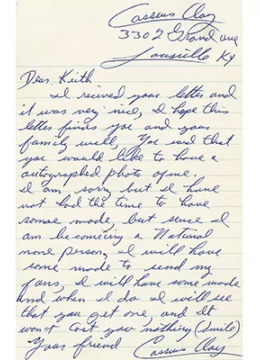 Cassius Clay
3302 Grand ave
Louisville Ky
Dear Keith
I recived your letter and
it was very nice, I hope this
letter finds you and your
family well, You said that
you would like to have a
autographed photo of me.
I am sorry but I have
not had the time to have
some made, but sense I
am becomeing a National
none person, I will have
some made to send my
fans, I will have some made
and when I do I will see
that you get one, and It
won't cost you nothing (smile)
Your friend Cassius Clay